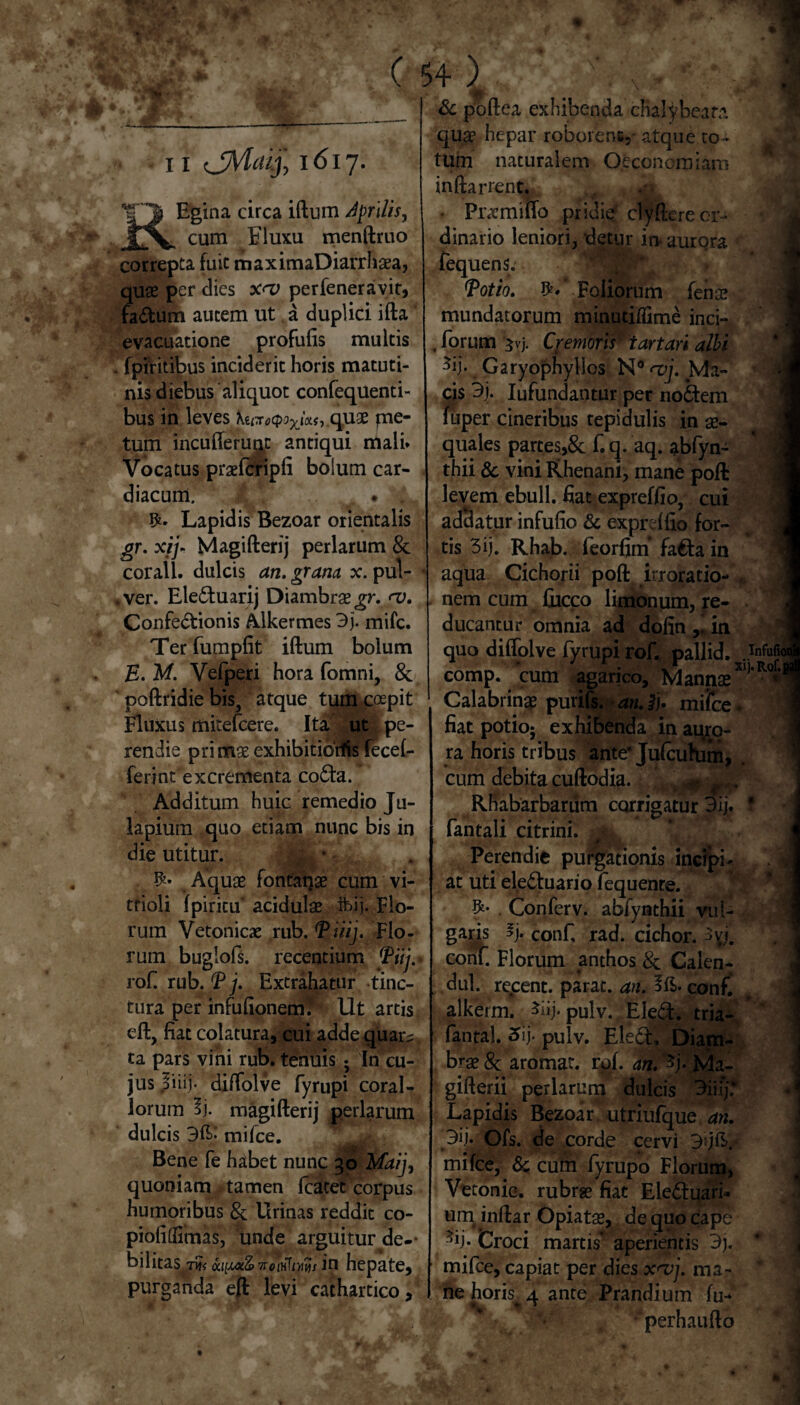 ( 54 )
11 Maij, 1617.
REgina circa iſtum Aprilis,
cum Fluxu menſtruo
correpta fuit maximaDiarrhæa,
quæ per dies xv perſeneravit,
factum autem ut à duplici iſta
evacuatione profuſis multis
ſpiritibus inciderit horis matuti-
nis diebus aliquot conſequenti-
bus in leves λειποψυχίας, quæ me-
tum incuſſerunt antiqui mali.
Vocatus præſcripſi bolum car-
diacum.
℞. Lapidis Bezoar orientalis
gr. xij. Magiſterij perlarum &
corall. dulcis an. grana x. pul-
ver. Electuarij Diambræ gr. v.
Confectionis Alkermes ℈j. miſc.
Ter ſumpſit iſtum bolum
E. M. Veſperi hora ſomni, &
poſtridie bis, atque tum cœpit
Fluxus miteſcere. Ita ut pe-
rendie primæ exhibitionis ſeceſ-
ſerint excrementa cocta.
Additum huic remedio Ju-
lapium quo etiam nunc bis in
die utitur.
℞. Aquæ fontanæ cum vi-
trioli ſpiritu acidulæ ℔ij. Flo-
rum Vetonicæ rub. P iiij. Flo-
rum bugloſs. recentium Piij.
roſ. rub. P j. Extrahatur tinc-
tura per infuſionem. Ut artis
eſt, fiat colatura, cui adde quar-
ta pars vini rub. tenuis; In cu-
jus ℥iiij. diſſolve ſyrupi coral-
lorum ℥j. magiſterij perlarum
dulcis ℈ß. miſce.
Bene ſe habet nunc 30 Maij,
quoniam tamen ſcatet corpus
humoribus & Urinas reddit co-
pioſiſſimas, unde arguitur de-
bilitas in hepate,
purganda eſt levi cathartico,
& poſtea exhibenda chalybeata
quæ hepar roborent, atque to-
tum naturalem Oeconomiam
inſtarrent.
Præmiſſo pridie clyſtere or-
dinario leniori, detur in aurora
ſequens.
Potio. ℞. Foliorum ſenæ
mundatorum minutiſſimè inci-
ſorum ʒvj. Cremoris tartari albi
ʒij. Garyophyllos Nº vj. Ma-
cis ℈j. Iufundantur per noctem
ſuper cineribus tepidulis in æ-
quales partes,& ſ. q. aq. abſyn-
thii & vini Rhenani, mane poſt
levem ebull. fiat expreſſio, cui
addatur infuſio & expreſſio for-
tis ʒij. Rhab. ſeorſim facta in
aqua Cichorii poſt irroratio-
nem cum ſucco limonum, re-
ducantur omnia ad doſin, in
quo diſſolve ſyrupi roſ. pallid.
comp. cum agarico, Mannæ
Calabrinæ puriſs. an. ℥j. miſce
fiat potio; exhibenda in auro-
ra horis tribus ante Juſculum,
cum debita cuſtodia.
Rhabarbarum corrigatur ℈ij.
ſantali citrini.
Perendie purgationis incipi-
at uti electuario ſequente.
℞. Conſerv. abſynthii vul-
garis ℥j. conſ. rad. cichor. ʒvj.
conſ. Florum anthos & Calen-
dul. recent. parat. an. ℥ß. conf.
alkerm. ʒiij. pulv. Elect. tria-
ſantal. ʒij. pulv. Elect. Diam-
bræ & aromat. roſ. an. ʒj. Ma-
giſterii perlarum dulcis ℈iiij.
Lapidis Bezoar utriuſque an.
℈ij. Oſs. de corde cervi ℈jß.
miſce, & cum ſyrupo Florum,
Vetonic. rubræ fiat Electuari-
um inſtar Opiatæ, de quo cape
ʒij. Croci martis aperientis ℈j.
miſce, capiat per dies xvj. ma-
ne horis 4 ante Prandium ſu-
perhauſto
Infuſion
xij. Roſ. pal